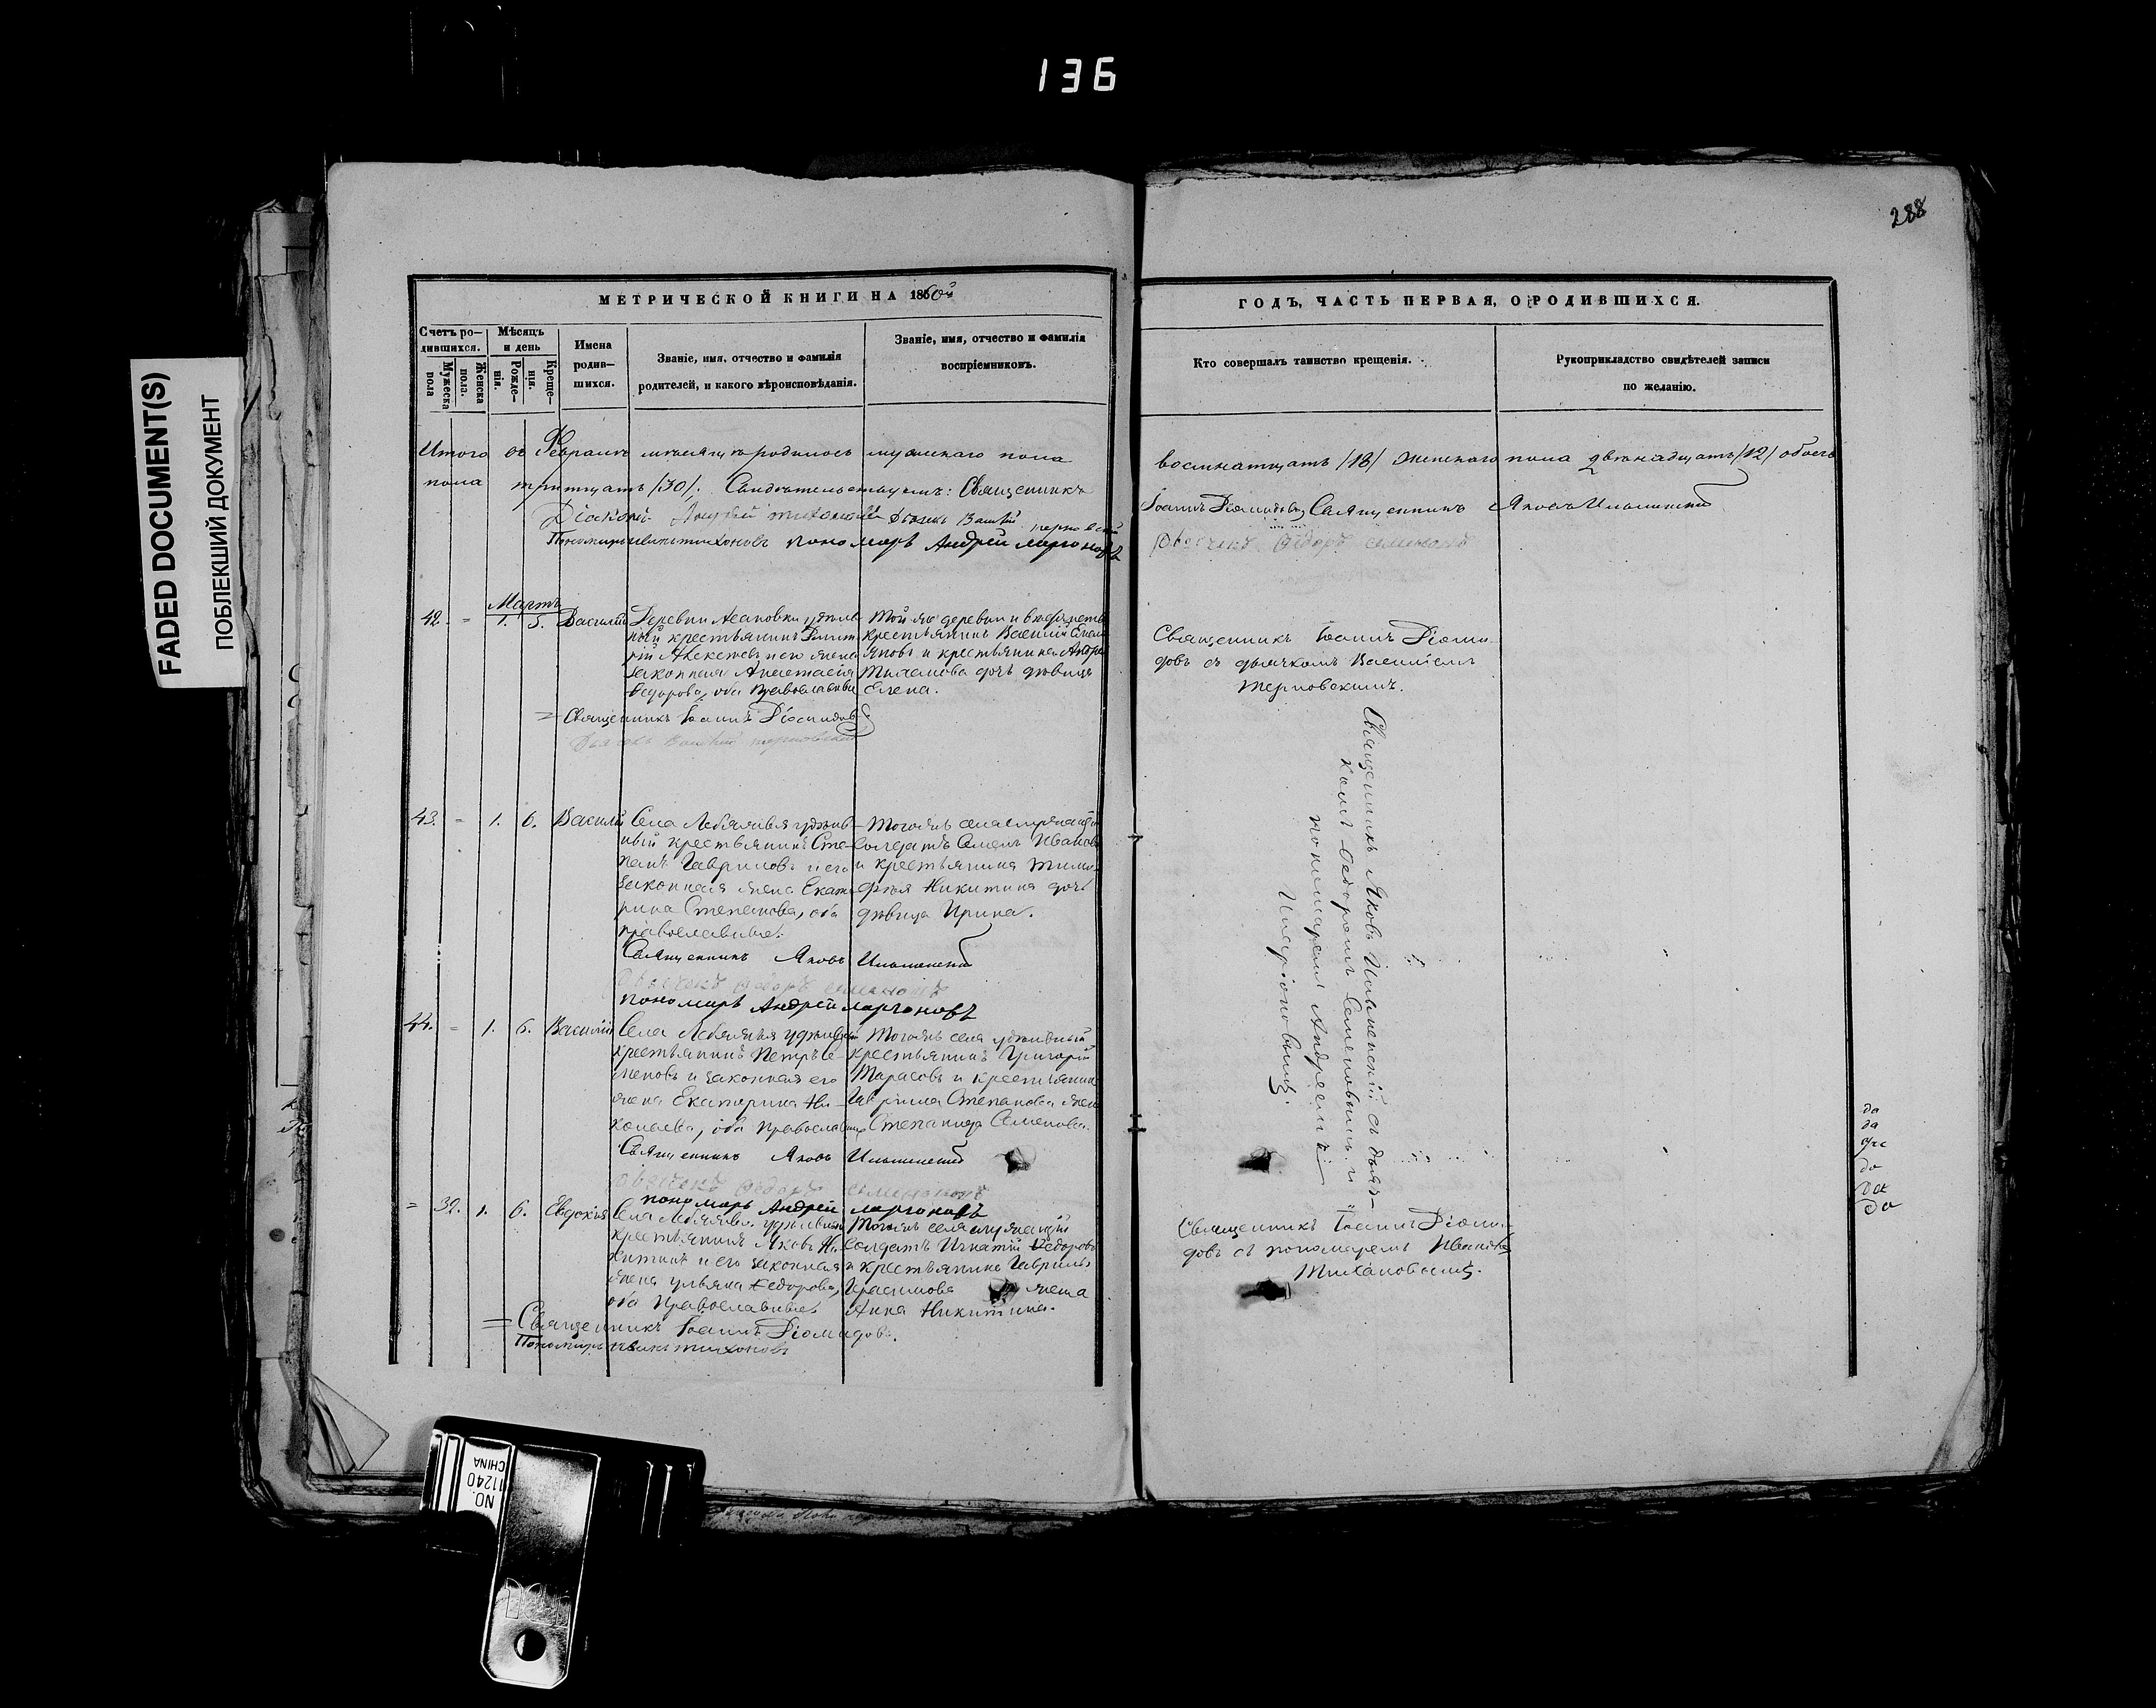 136
288
FADED DOCUMENT(S)
ПОБЛЕКШИЙ ДОКУМЕНТ
МЕТРИЧЕСКОЙ КНИГИ НА 1860й
ГОДЪ, ЧАСТЬ ПЕРВАЯ, О РОДИВШИХСЯ.
Счетъ ро-
дившихся.
Мужеска
пола
Женска
пола.
Мѣсяцъ
и день
Рожде-
нія.
Креще-
нія.
Имена
родив-
шихся.
Званіе, имя, отчество и фамилія
родителей, и какого вѣроисповѣданія.
Званіе, имя, отчество и фамилія
воспріемниковъ.
Кто совершалъ таинство крещенія.
Рукоприкладство свидѣтелей записи
по желанію.
Итого въ Февралѣ мѣсяцѣ родилось мужескаго пола
восемнатцать /18/ женскаго пола двѣнадцать /12/ обоего
пола тритцать /30/; Свидѣтельствуемъ: Священникъ
Іоаннъ Діомидовъ Священникъ Яковъ Ильинскій
Діаконъ Дьячекъ Василій Терновскій
Пономарь Иванъ Тихоновъ пономарь Андрей Ларионовъ
Дьячекъ Ѳедоръ Семеновъ
Мартъ
42. = 1. 5. Василій
Деревни Асановки удѣль
ный крестьянинъ Димит
рій Алексѣевъ и его жена
законная Анастасія
Ѳедорова, оба Православные
Той же деревни
крестьянинъ Василій
и крестьянина Андрея
дочь дѣвица
Елена.
Священникъ Іоаннъ Діоми-
довъ съ дьячкомъ Василіемъ
Терновскимъ.
= Священникъ Іоаннъ Діомидовъ
Дьячекъ Василій Терновскій
43. = 1. 6. Василій
Села Лебяжья удѣль-
ный крестьянинъ Сте-
панъ Гавриловъ и его
законная жена Екате
рина Степанова, оба
православные.
Тогожъ села служащій
Солдатъ Семенъ Ивановъ
и крестьянина Тимо-
фѣя Никитина дочь
дѣвица Ирина.
Священникъ Яковъ Ильинскій съ дьяч-
комъ Ѳедоромъ Семеновымъ и
пономаремъ Андреемъ
Иларіоновымъ.
Священникъ Яковъ Ильинскій
Дьячекъ Ѳедоръ Семеновъ
пономарь Андрей Ларионовъ
44. = 1. 6. Василій
Села Лебяжья удѣльный
крестьянинъ Петръ Се-
меновъ и законная его
жена Екатерина Ни-
колаева, оба Православные
Тогожъ села удѣльный
крестьянинъ Григорій
Тарасовъ и крестьянина
Гавріила Степанова жена
Степанида Семенова.
Священникъ Яковъ Ильинскій
Дьячекъ Ѳедоръ Семеновъ
пономарь Андрей Ларионовъ
= 32. 1. 6. Евдокія
Села Лебяжья удѣльный
крестьянинъ Яковъ Ни-
китинъ и его законная
жена Ульяна Ѳедорова,
оба Православные
Тогожъ села служащій
Солдатъ Игнатій Ѳедоровъ
и крестьянина Гаврилы
жена
Анна Никитина.
Священникъ Іоаннъ Діоми-
довъ съ пономаремъ Иваномъ
Тихоновымъ.
= Священникъ Іоаннъ Діомидовъ.
Пономарь Иванъ Тихоновъ
NO.
11240
CHINA